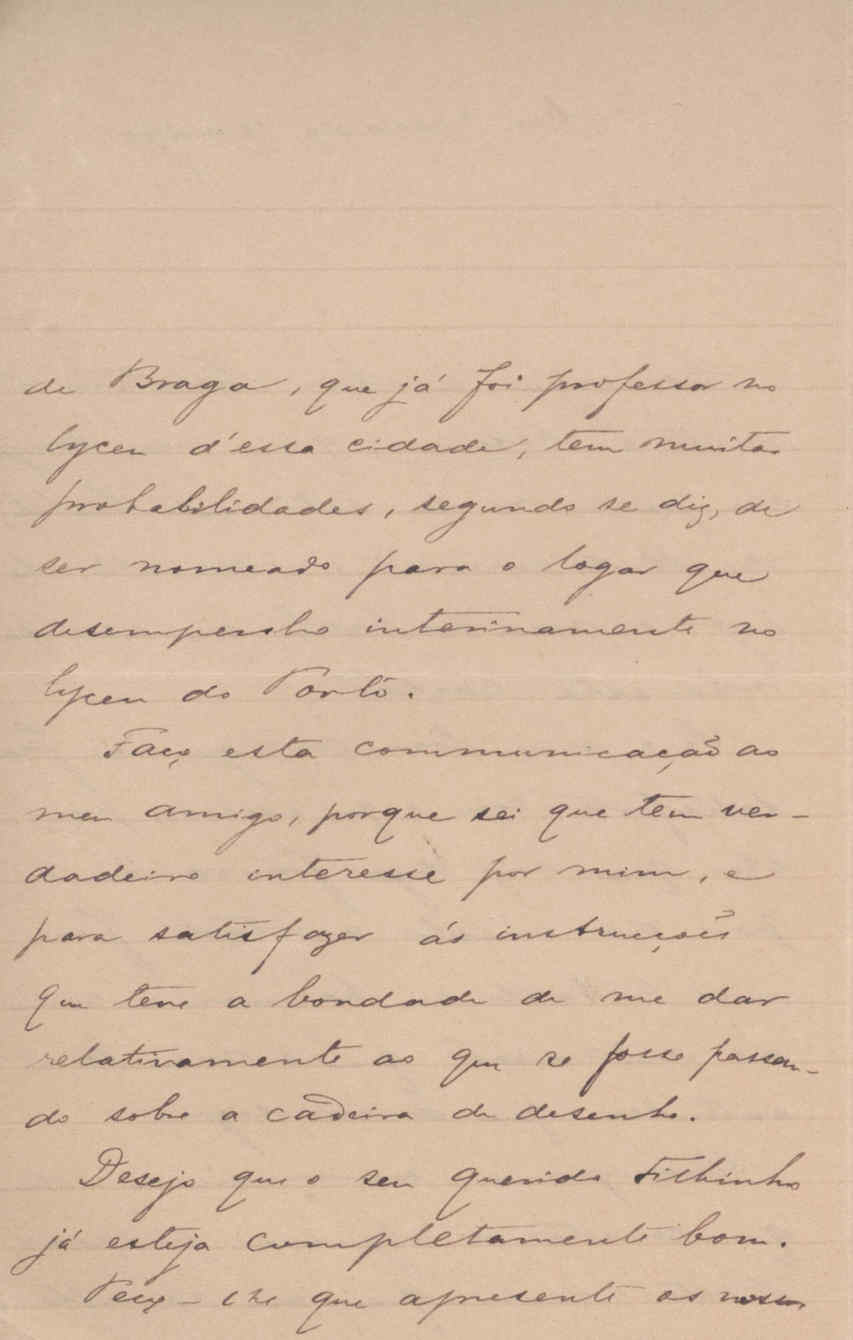 de Braga, que já foi professor no
lyceu d'essa cidade, tem muitas
probabilidades, segundo se diz, de
ser nomeado para o logar que
desempenho interinamente no
lyceu do Porto.
Faço esta communicação ao
meu amigo, porque sei que tem ver-
dadeiro interesse por mim, e
para satisfazer ás instrucções
que teve a bondade de me dar
relativamente ao que se fosse passan-
do sobre a cadeira de desenho.
Desejo que o seu querido Filhinho
já esteja completamente bom.
Peço-lhe que apresente os nossos